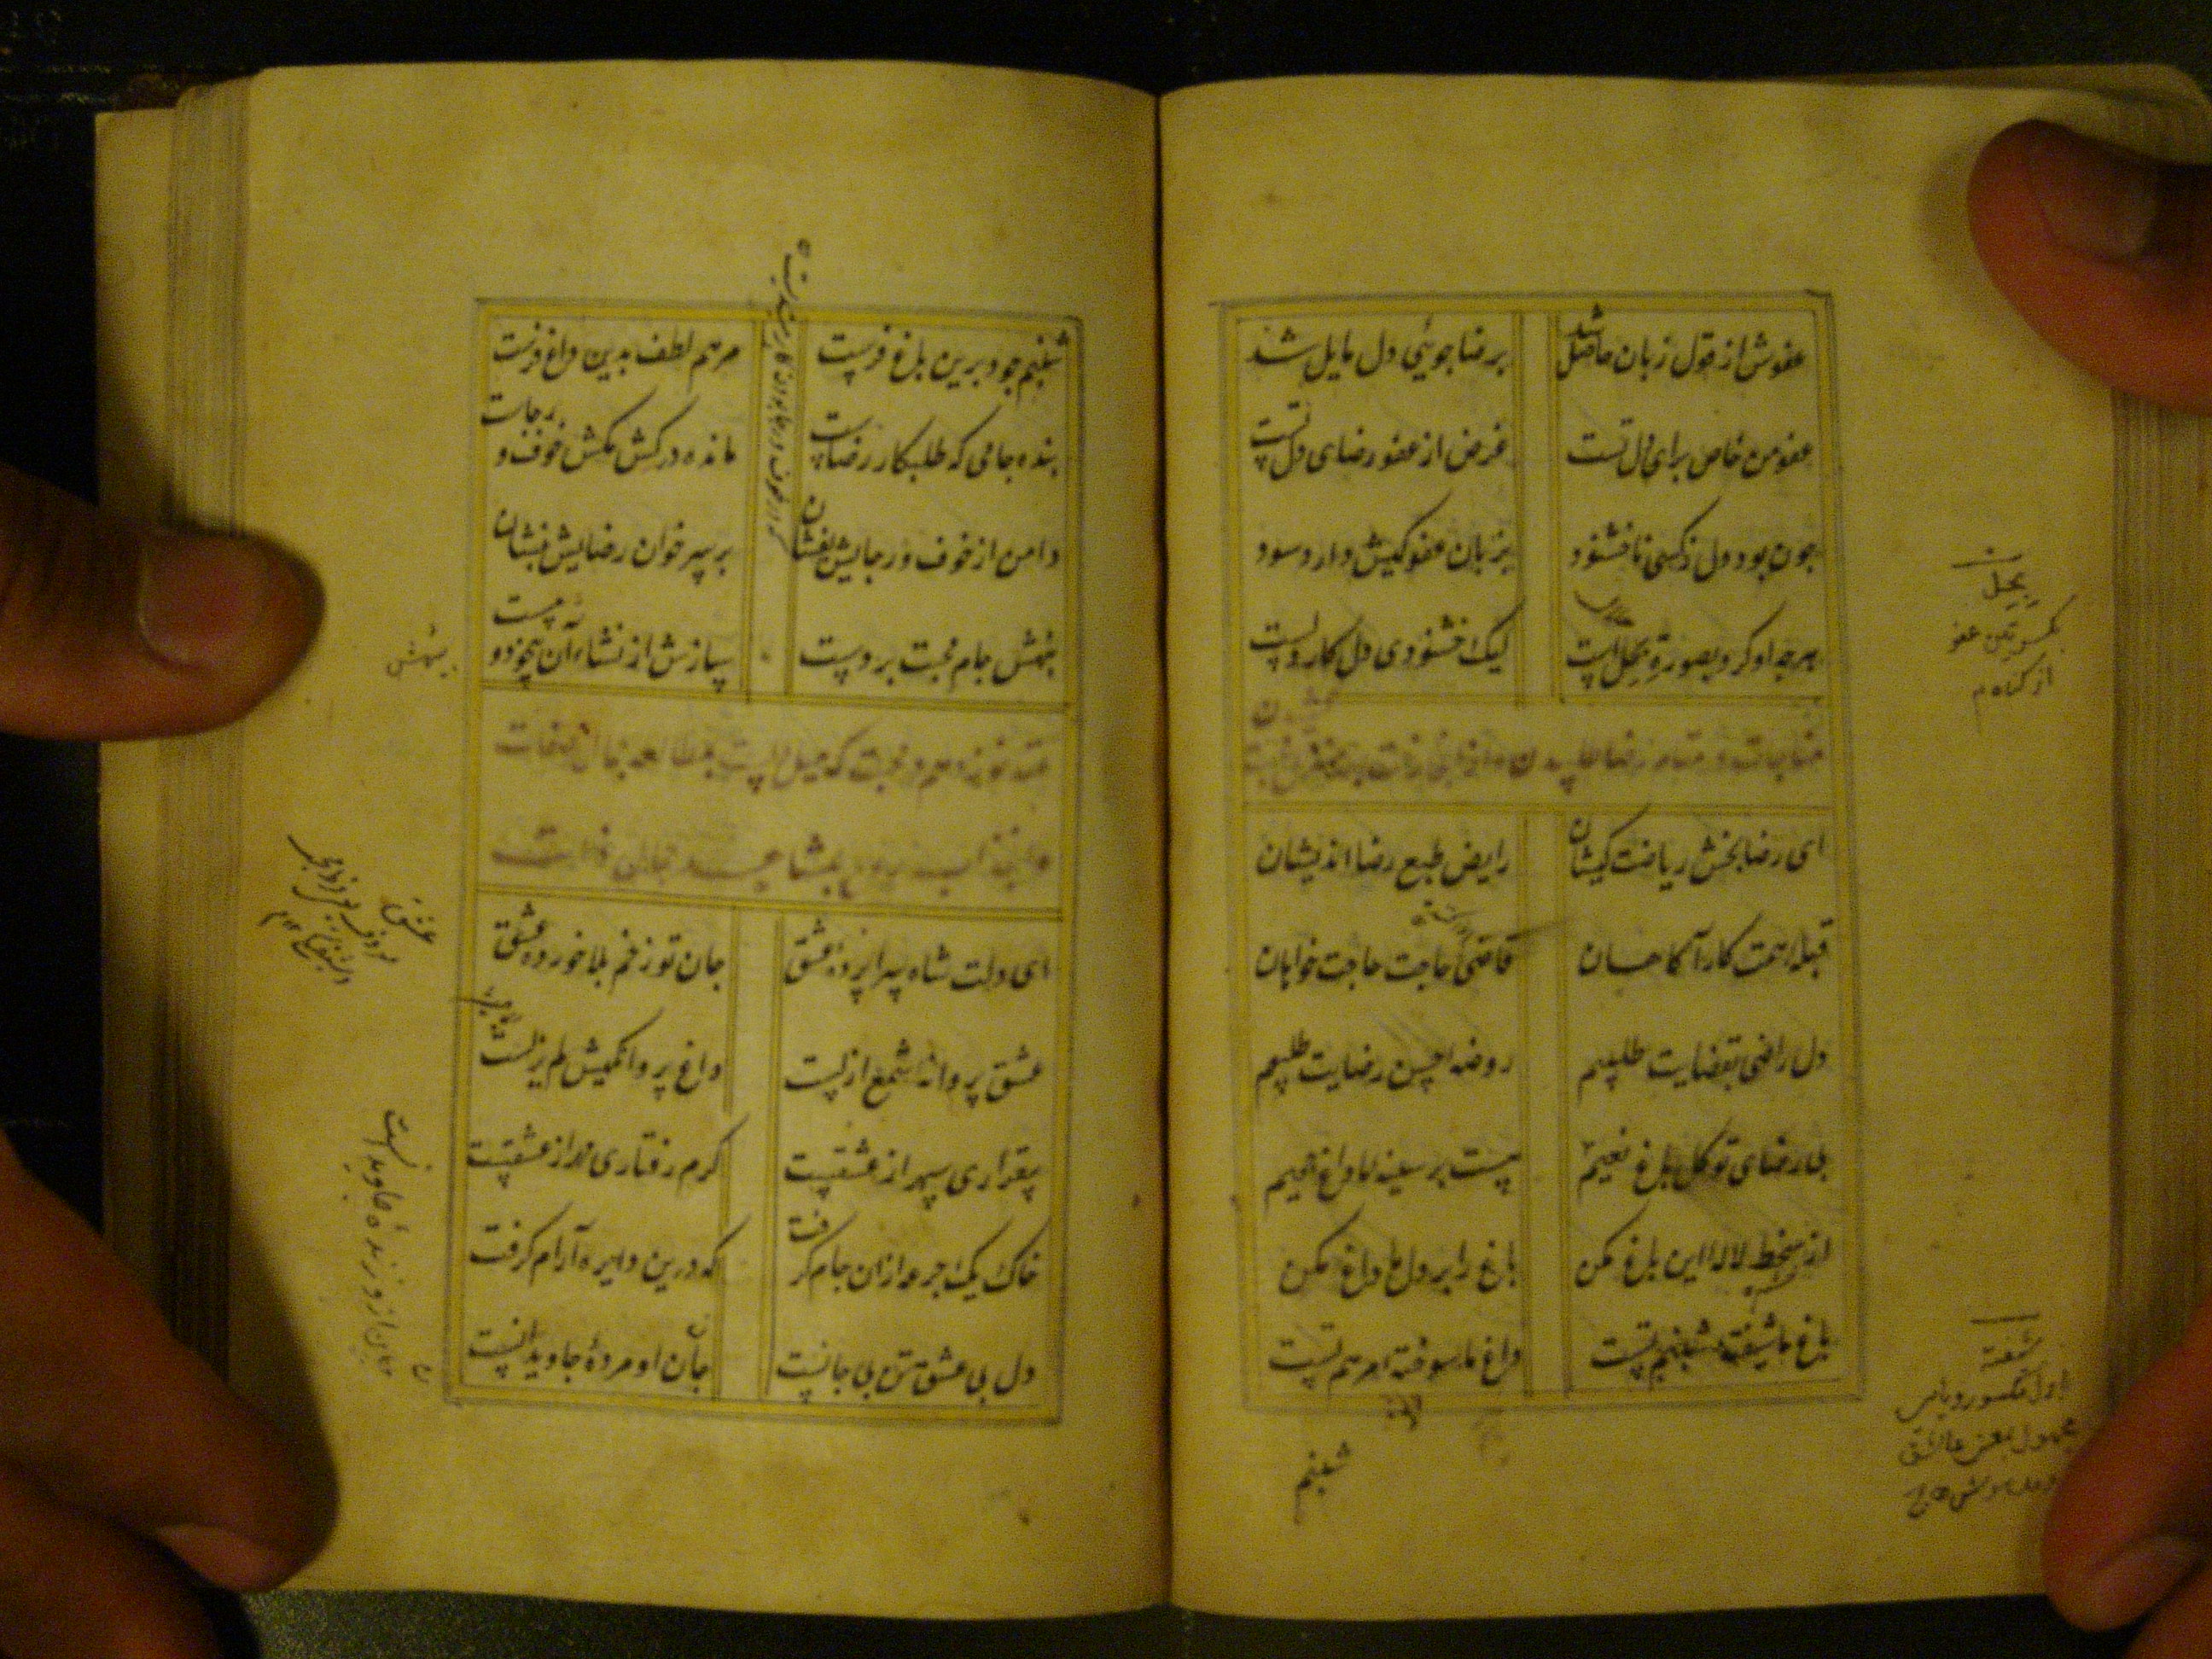 عفوش از قول زبان حاصل شد
بر رضا جوئی دل مایل شد
عفو من خاص برای دل تست
غرض از عفو رضای دل تست
چون بود دل ز کسی ناخشنود
بزبان عفو کیش دارد سود
هرچه او کرد بصورة بحل است
لیک خشنودی دل کار دلست
مناجات در مقام رضا طلبیدن و
ای رضا بخش ریاضت کیشان
رایض طبع رضا اندیشان
قبله همت کار آکاهان
قاضی حاجت حاجت خواهان
دل راضی بقضایت طلبیم
روضه امن رضایت طلبیم
بی رضای تو کل باغ نعیم
هست بر سینه ما داغ جحیم
از سخط لاله این باغ مکن
باغ را بر دل ما داغ مکن
باغ ما شیفته شبنم تست
داغ ما سوخته مرهم تست
شبنم
بحل
بکسرتین عفو
از کناه
شیفته
شبنم جود برین باغ فرست
مرهم لطف بدین داغ فرست
بنده جامی که طلبکار رضاست
مانده در کش مکش خوف و رجاست
دامن از خوف و رجایش بفشان
بر سر خوان رضایش بنشان
بنهش جام محبت بر دست
سازش از نشاءه آن بیخود و مست
عقد نوزدهم در محبت که میل دلست بمطالعه جمال صفات
و انجذاب روح بمشاهده جمال ذات
ای دلت شاه سراپرده عشق
جان تو زخم بلا خورده عشق
عشق پروانه شمع ازلست
داغ پروانکیش لم یزلست
بیقراری سپهر از عشقیست
کرم رفتاری مهر از عشقیست
خاک یک جرعه از آن جام کرفت
که درین دایره آرام کرفت
دل بی عشق تن بی جانست
جان ازو زنده جاویدانست